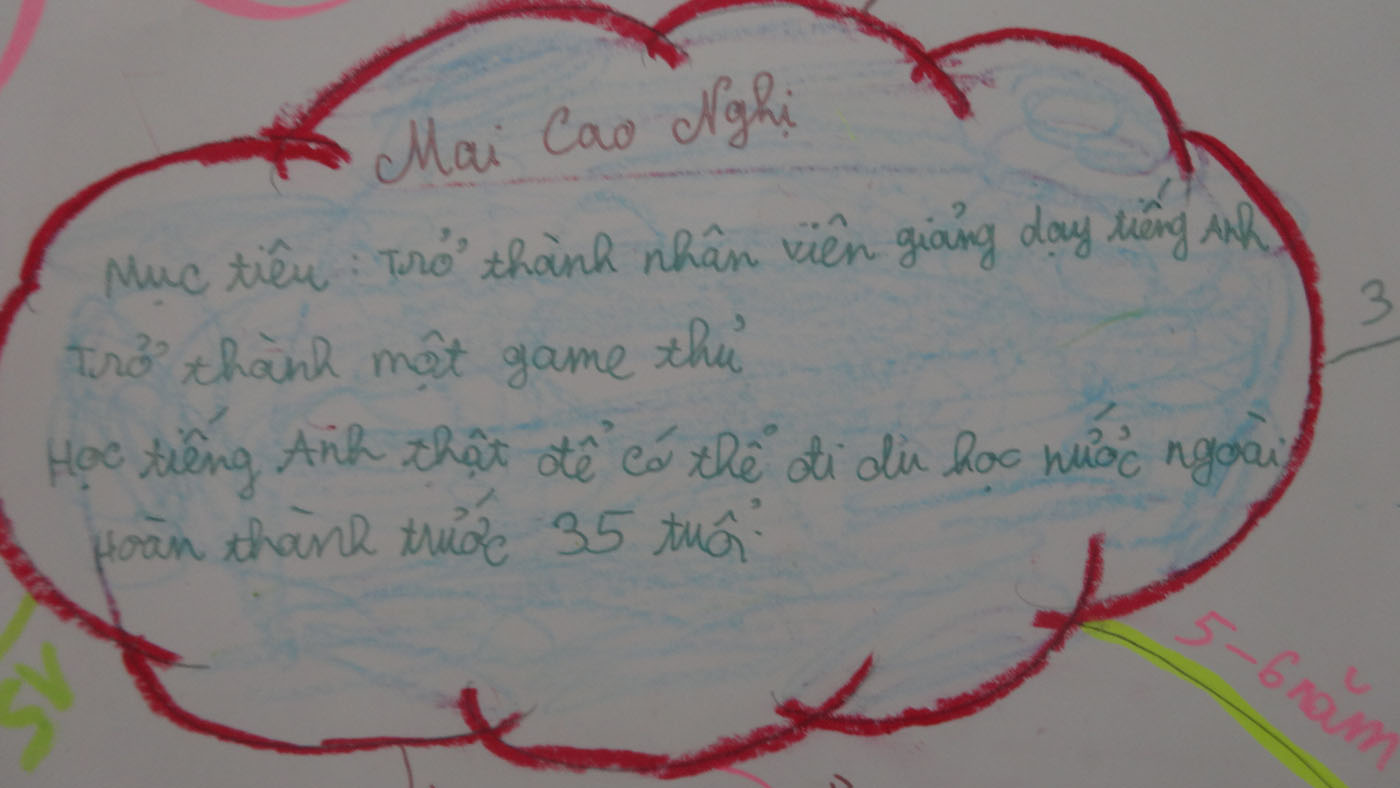 Mai Cao Nghị
Mục tiêu : Trở thành nhân viên giảng dạy tiếng Anh
Trở thành một game thủ
Học tiếng Anh thật để có thể đi du học nước ngoài
Hoàn thành trước 35 tuổi.
3
5-6 năm
SV